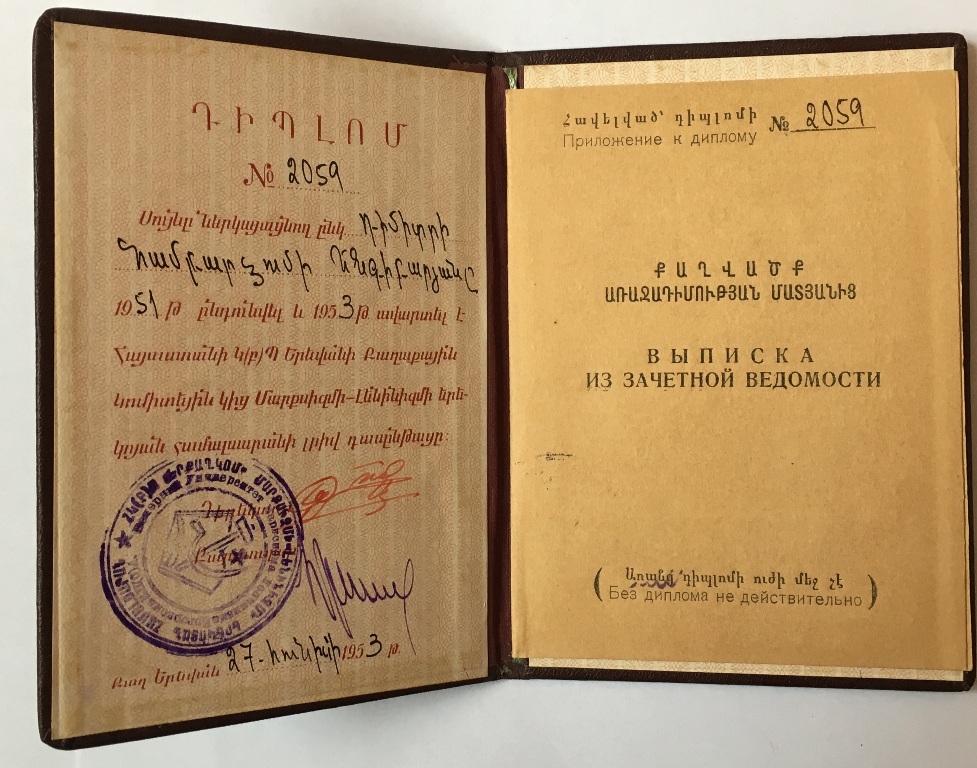 ԴԻՊԼՈՄ
№ 2059
Սույնը ներկայացնող ընկ. Դիմիտրի
Համբարձումի
1951 թ ընդունվել և 1953 թ ավարտել է
Հայաստանի Կ(բ)Պ Երևանի Քաղաքային
Կոմիտեյին կից Մարքսիզմի-Լենինիզմի երե-
կոյան համալսարանի լրիվ դասընթացը։
Քաղ Երևան 27-հունիսի 1953 թ.
Հավելված՝ դիպլոմի
Приложение к диплому № 2059
ՔԱՂՎԱԾՔ
ԱՌԱՋԱԴԻՄՈՒԹՅԱՆ ՄԱՏՅԱՆԻՑ
ВЫПИСКА
ИЗ ЗАЧЕТНОЙ ВЕДОМОСТИ
(Առանց դիպլոմի ուժի մեջ չէ
Без диплома не действительно)